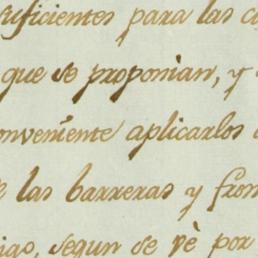 suficientes para las
que se proponian, y
conveniente aplicarlos
las barreras y
segun se vè por